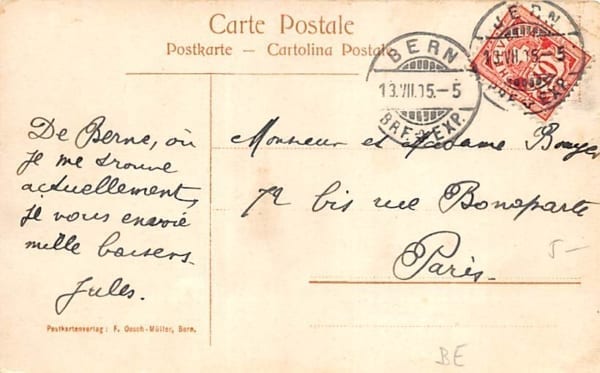 Carte Postale
Postkarte — Cartolina Postale
BERN
13.VII.15.-5
BRF. EXP.
BERN
13.VII.15.-5
De Berne, où
je me trouve
actuellement,
je vous envoie
mille baisers.
Jules.
Monsieur et Madame Bouyer
72 bis rue Bonaparte
Paris.
5-
Postkartenverlag: F. Oesch-Müller, Bern.
BE